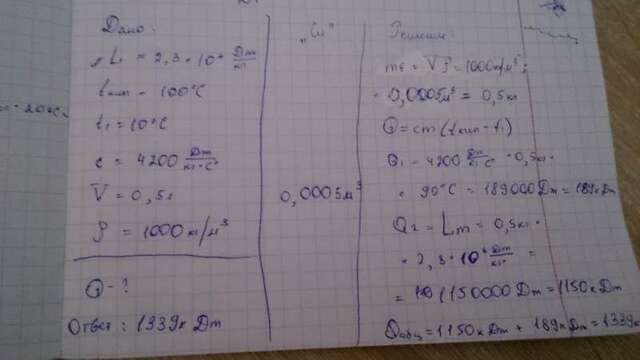 Дано:
L = 2,3 · 10⁶ Дж/кг
tкип = 100°C
t₁ = 10°C
c = 4200 Дж/кг·°C
V = 0,5 л
ρ = 1000 кг/м³
Q - ?
Ответ: 1339к Дж
„Си"
0,0005м³
Решение
mв = Vρ = 1000кг/м³ ·
· 0,0005м³ = 0,5кг
Q = cm(tкип - t₁)
Q₁ = 4200 Дж/кг·°C · 0,5кг ·
· 90°C = 189000 Дж = 189к Дж
Q₂ = Lm = 0,5кг ·
· 2,3 · 10⁶ Дж/кг =
= 1150000 Дж = 1150к Дж
Qобщ = 1150к Дж + 189к Дж = 1339к
- 20°C